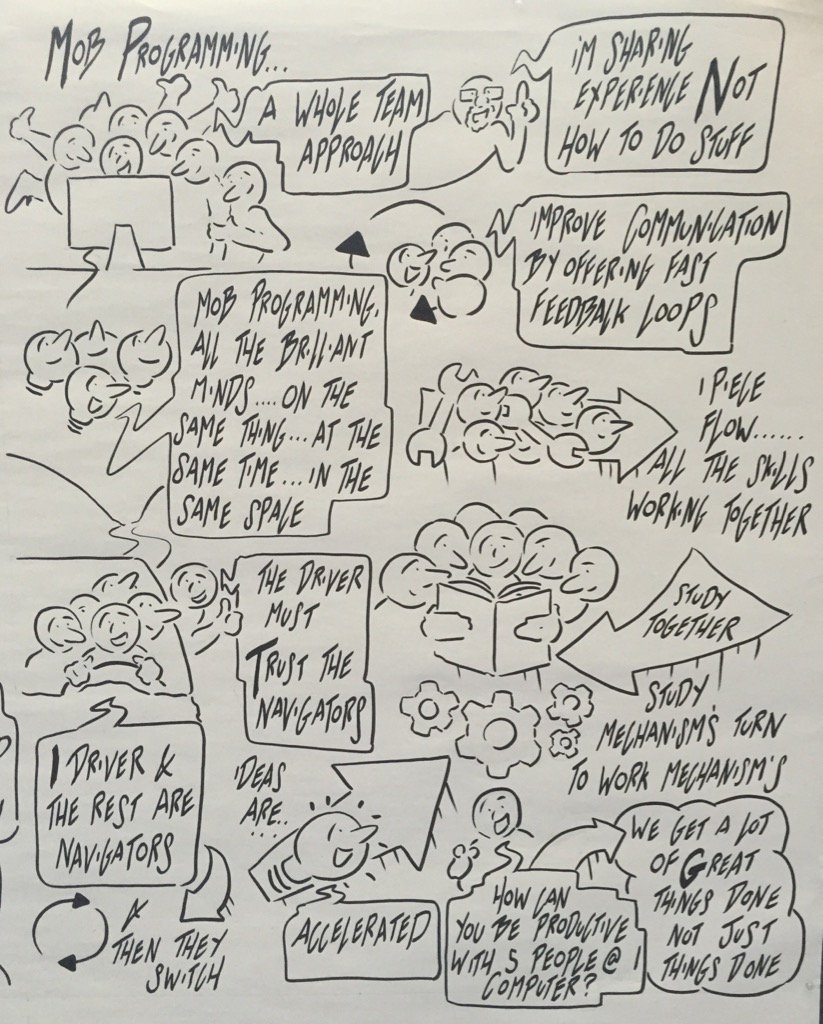 MOB PROGRAMMING...
A WHOLE TEAM
APPROACH
I'M SHARING
EXPERIENCE NOT
HOW TO DO STUFF
IMPROVE COMMUNICATION
BY OFFERING FAST
FEEDBACK LOOPS
MOB PROGRAMMING.
ALL THE BRILLIANT
MINDS.... ON THE
SAME THING... AT THE
SAME TIME... IN THE
SAME SPACE
1 PIECE
FLOW......
ALL THE SKILLS
WORKING TOGETHER
THE DRIVER
MUST
TRUST THE
NAVIGATORS
STUDY
TOGETHER
STUDY
MECHANISM'S TURN
TO WORK MECHANISM'S
1 DRIVER &
THE REST ARE
NAVIGATORS
& THEN THEY
SWITCH
IDEAS
ARE.....
ACCELERATED
HOW CAN
YOU BE PRODUCTIVE
WITH 5 PEOPLE @ 1
COMPUTER?
WE GET A LOT
OF GREAT
THINGS DONE
NOT JUST
THINGS DONE